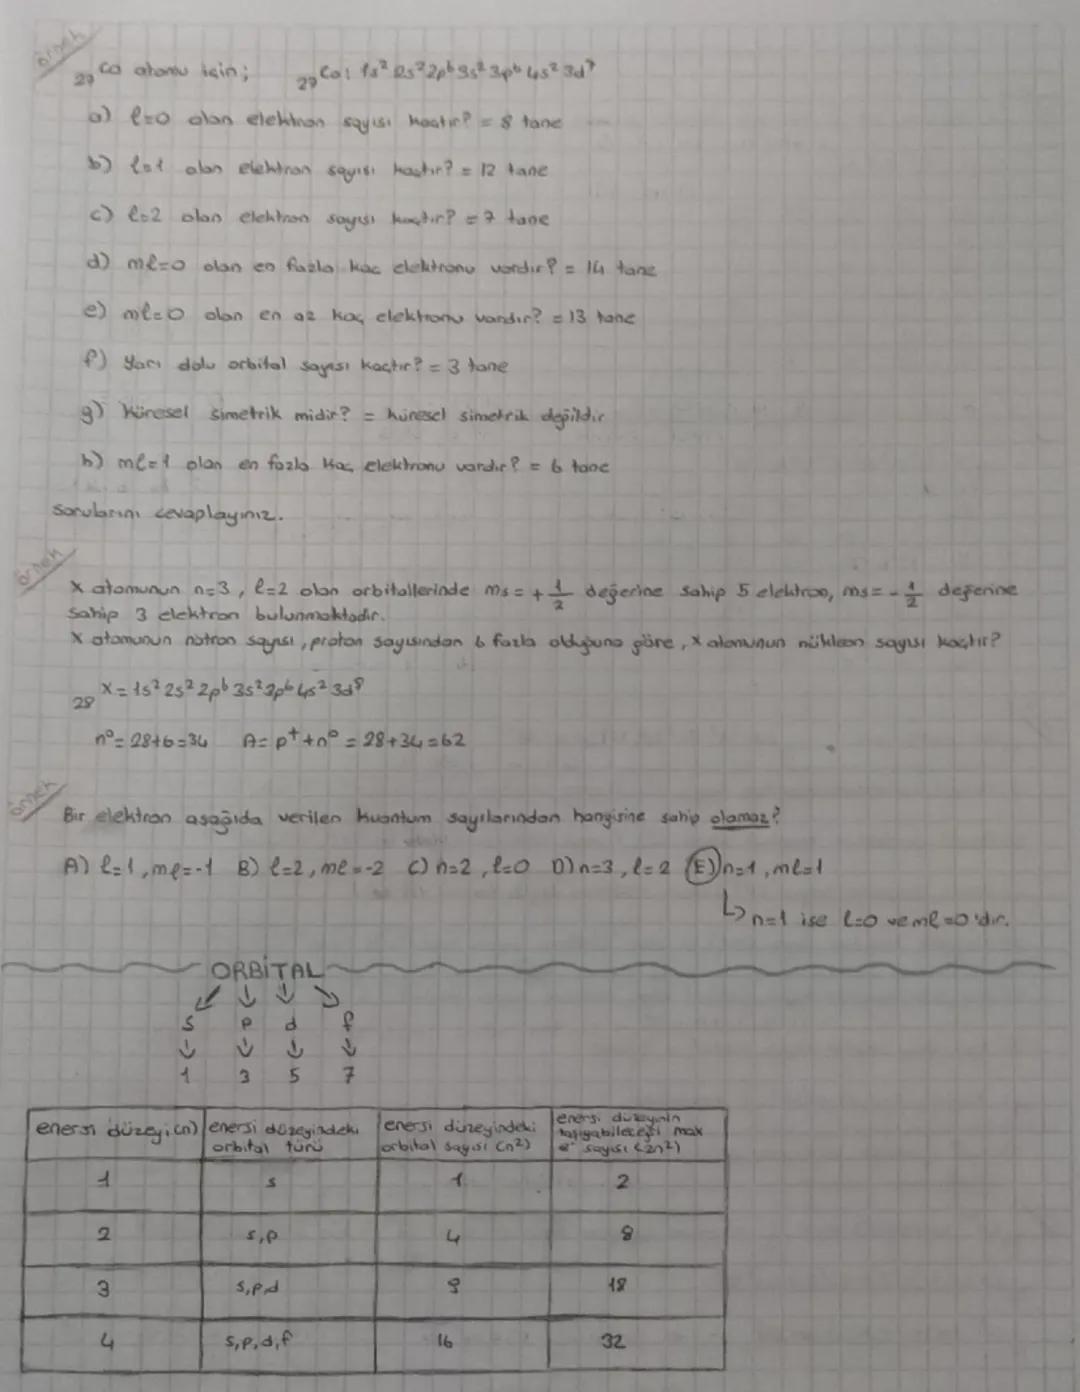 örnek
₂₇Co atomu için; ₂₇Co: 1s² 2s² 2p⁶ 3s² 3p⁶ 4s² 3d⁷
a) l=0 olan elektron sayısı kaçtır? = 8 tane
b) l=1 olan elektron sayısı kaçtır? = 12 tane
c) l=2 olan elektron sayısı kaçtır? = 7 tane
d) ml=0 olan en fazla kaç elektronu vardır? = 14 tane
e) ml=0 olan en az kaç elektronu vardır? = 13 tane
f) Yarı dolu orbital sayısı kaçtır? = 3 tane
g) Küresel simetrik midir? = küresel simetrik değildir
h) ml=1 olan en fazla kaç elektronu vardır? = 6 tane
sorularını cevaplayınız.
örnek
X atomunun n=3, l=2 olan orbitallerinde ms = +1/2 değerine sahip 5 elektron, ms = -1/2 değerine
sahip 3 elektron bulunmaktadır.
X atomunun nötron sayısı, proton sayısından 6 fazla olduğuna göre, X atomunun nükleon sayısı kaçtır?
₂₈X = 1s² 2s² 2p⁶ 3s² 3p⁶ 4s² 3d⁸
n⁰ = 28+6=34 A= p⁺ + n⁰ = 28+34=62
örnek
Bir elektron aşağıda verilen kuantum sayılarından hangisine sahip olamaz?
A) l=1, ml=-1 B) l=2, ml=-2 C) n=2, l=0 D) n=3, l=2 E) n=1, ml=1
↳ n=1 ise l=0 ve ml=0'dır.
ORBİTAL
s p d f
1 3 5 7
enerji düzeyi (n) enerji düzeyindeki orbital türü enerji düzeyindeki orbital sayısı (n²) enerji düzeyinin taşıyabileceği max e⁻ sayısı (2n²)
1 s 1 2
2 s,p 4 8
3 s,p,d 9 18
4 s,p,d,f 16 32